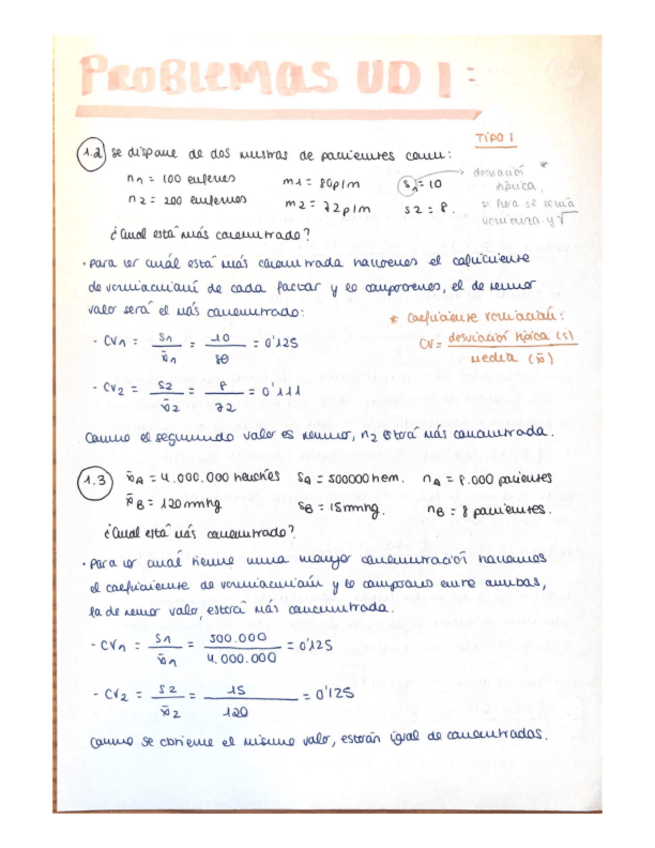 PROBLEMAS UD 1:
TIPO 1
1.2 se dispone de dos muestras de pacientes como:
n1 = 100 enfermos m1 = 80 p/m s1 = 10
n2 = 200 enfermos m2 = 72 p/m s2 = 8.
→ desviación típica, *
si fuera s² sería
varianza y √
¿Cual está más concentrado?
· Para ver cuál está más concentrada hacemos el coeficiente
de variación de cada factor y lo comparamos, el de menor
valor será el más concentrado:
* Coeficiente variación:
CV = desviación típica (s) / media (x̄)
- CV1 = s1 / x̄1 = 10 / 80 = 0'125
- CV2 = s2 / x̄2 = 8 / 72 = 0'111
Como el segundo valor es menor, n2 estará más concentrada.
1.3 x̄A = 4.000.000 hematíes sA = 500000 hem. nA = 8.000 pacientes
x̄B = 120 mmHg sB = 15 mmHg. nB = 8 pacientes.
¿Cual está más concentrado?
· Para ver cuál tiene una mayor concentración hacemos
el coeficiente de variación y lo comparamos entre ambas,
la de menor valor, estará más concentrada.
- CV1 = s1 / x̄1 = 500.000 / 4.000.000 = 0'125
- CV2 = s2 / x̄2 = 15 / 120 = 0'125
Como se obtiene el mismo valor, estarán igual de concentradas.